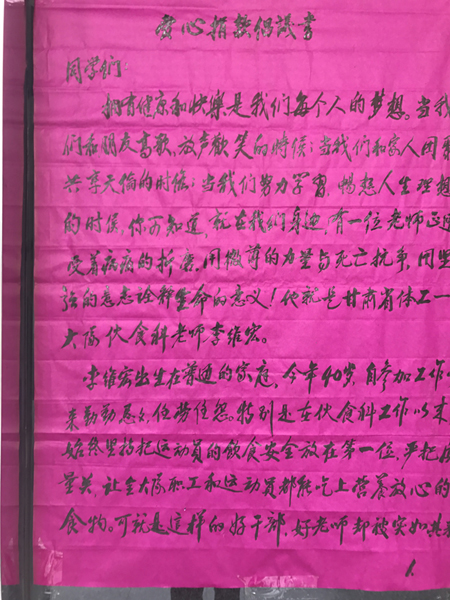 爱心捐款倡议书
同学们:
拥有健康和快乐,是我们每个人的梦想。当我
们和朋友高歌、放声欢笑的时候;当我们和家人团聚
共享天伦的时候;当我们努力学习,畅想人生理想
的时候,你可知道,就在我们身边,有一位老师正遭
受着病痛的折磨,用微薄的力量与死亡抗争,用坚
强的意志诠释生命的意义!他就是甘肃省体工一
大队伙食科老师李维宏。
李维宏出生在普通的家庭,今年40岁,自参加工作以
来勤勤恳恳,任劳任怨。特别是在伙食科工作以来
始终坚持把运动员的饮食安全放在第一位,严把质
量关,让全大队职工和运动员都能吃上营养放心的
食物。可就是这样的好干部,好老师却被突如其来
1.